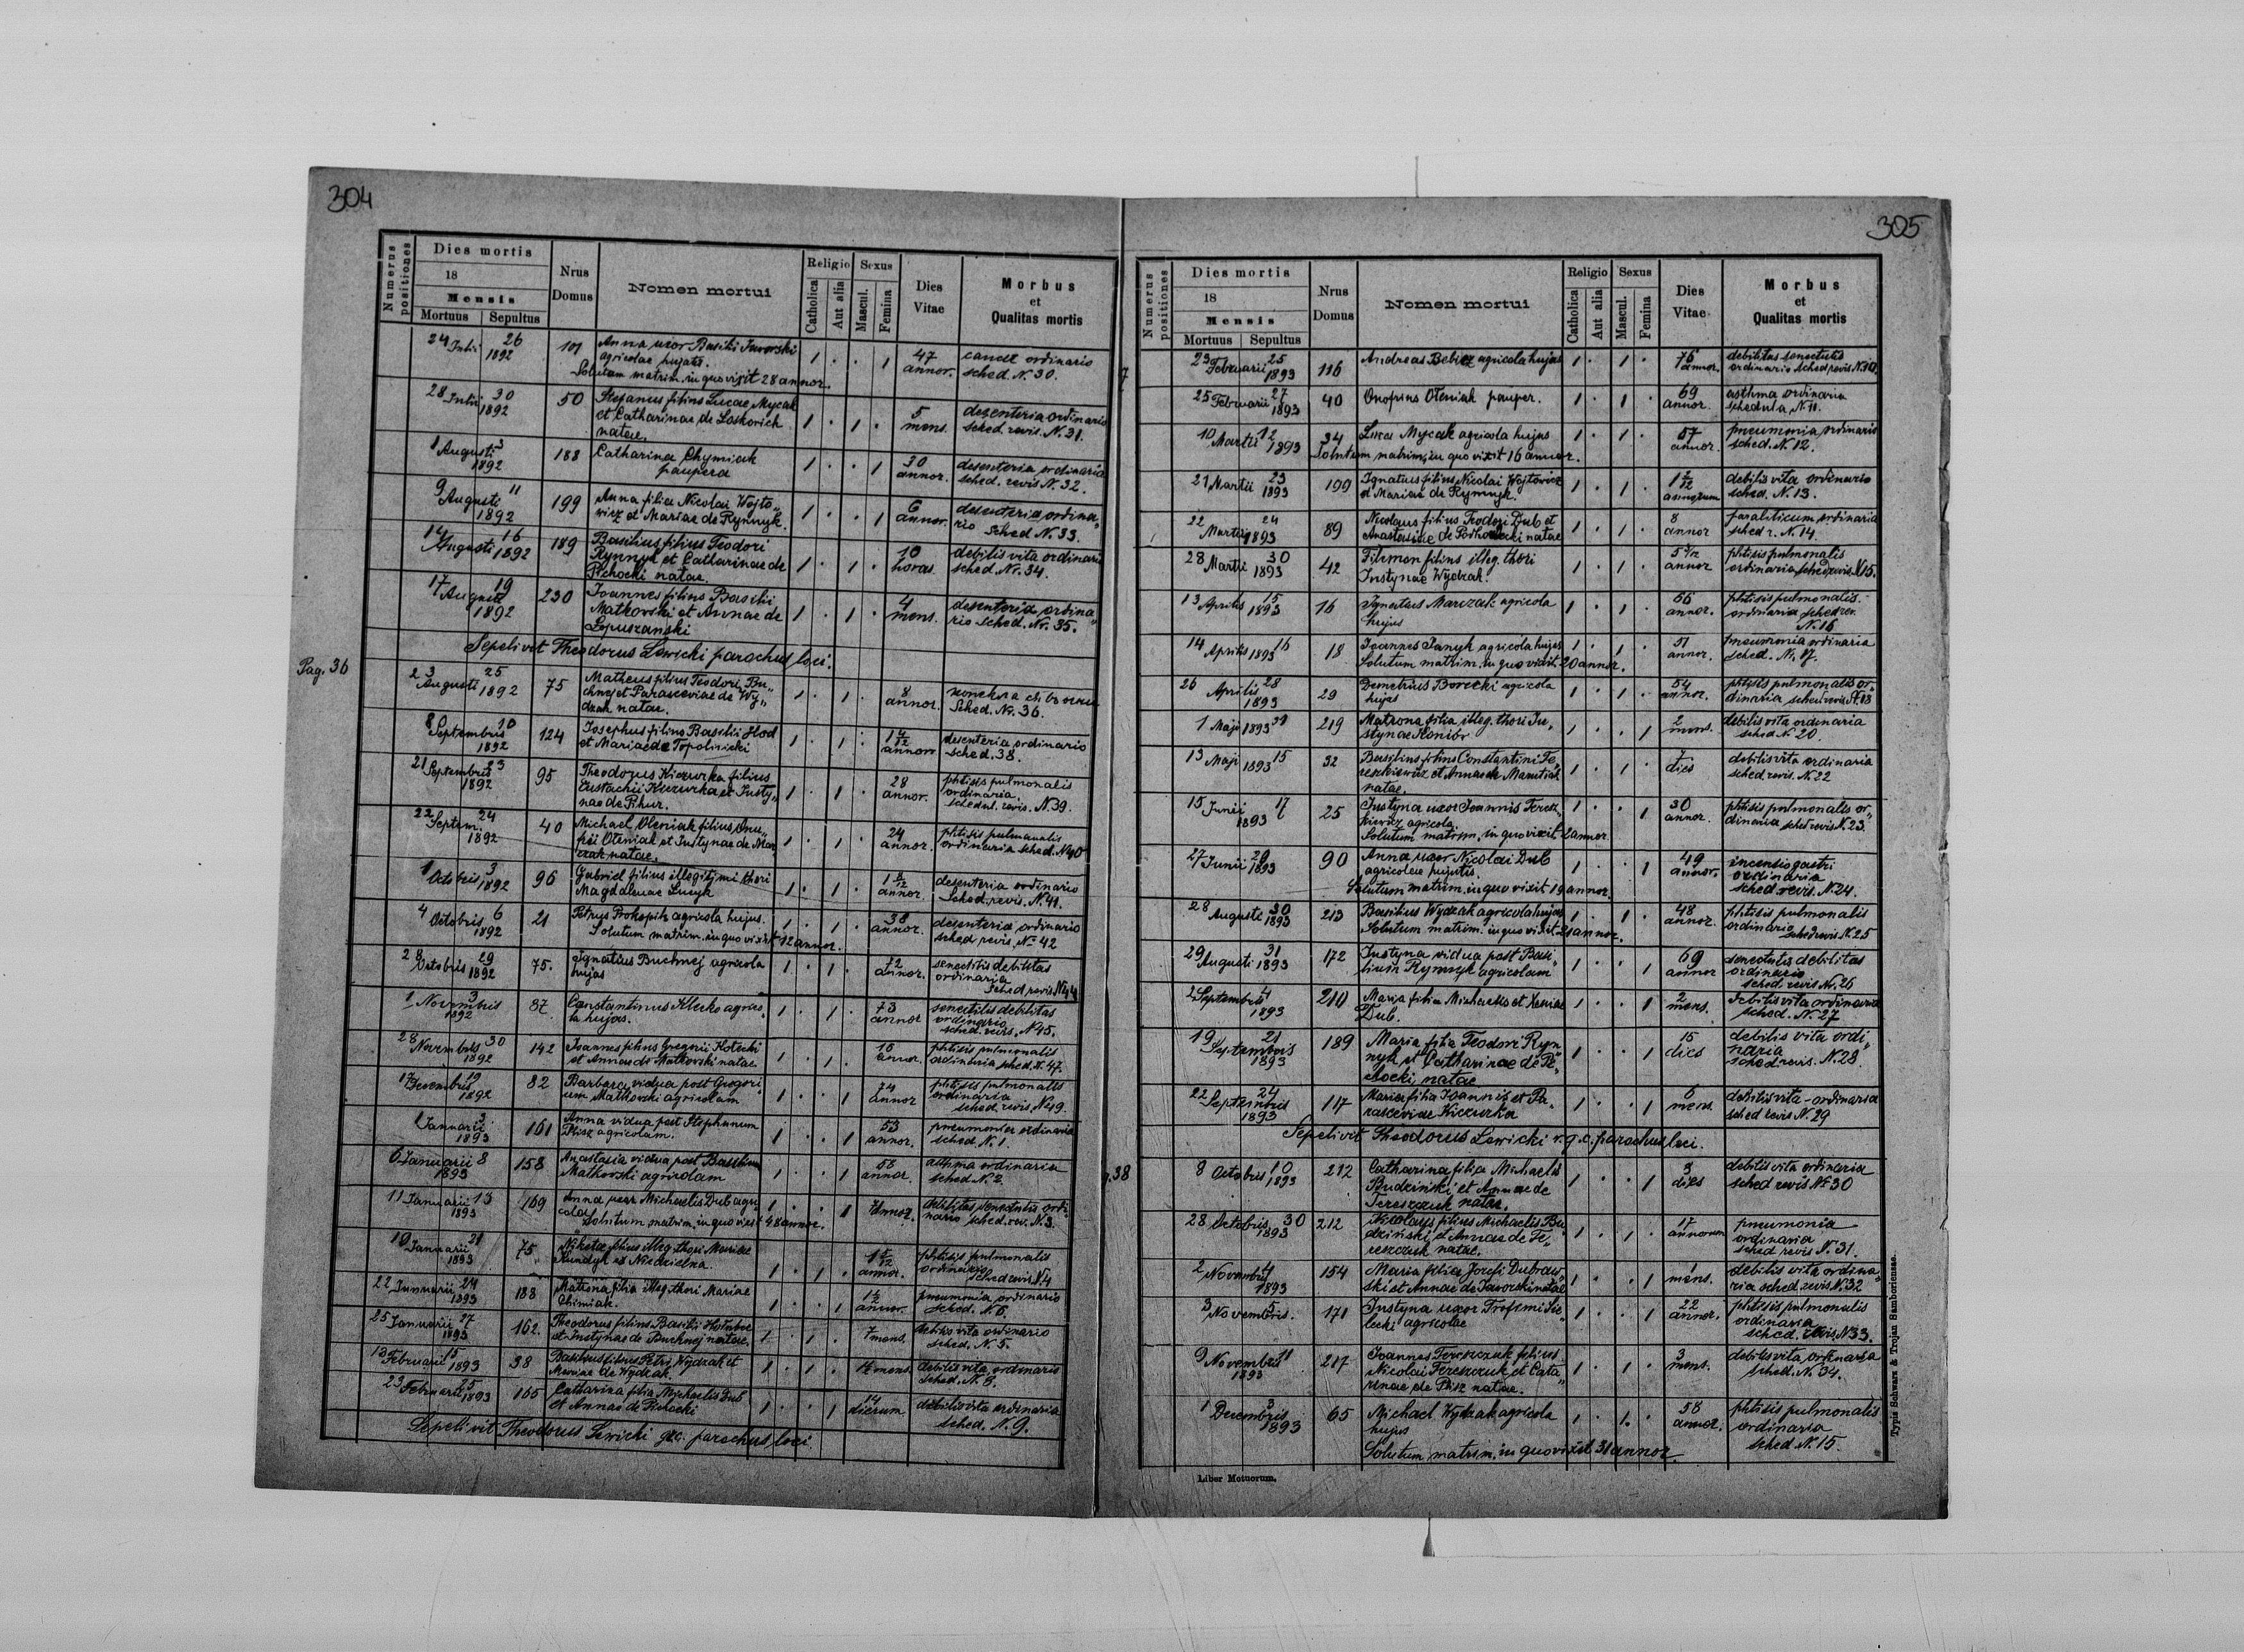 304
Numerus positiones
Dies mortis
18
Mensis
Mortuus Sepultus
Nrus Domus
Nomen mortui
Religio
Catholica
Aut alia
Sexus
Mascul.
Femina
Dies Vitae
Morbus et Qualitas mortis
24 Julii 26 1892 101 Anna uxor Basilii Jaworski 1 . . 1 47 annor. cancer ordinario
agricolae hujatis. sched. N. 30.
Solutum matrim. in quo vixit 28 annor.
28 Julii 30 1892 50 Stefanus filius Lucae Mycak 1 . 1 . 5 mens. desenteria ordinario
et Catharinae de Laskovich sched. revis. N. 31.
natae.
1 Augusti 3 1892 188 Catharina Chymiak 1 . . 1 30 annor. desenteria ordinaria
paupera sched. revis N. 32.
9 Augusti 11 1892 199 Anna filia Nicolai Wojto„ 1 . . 1 6 annor. desenteria ordina„
wicz et Mariae de Rynnyk. rio Sched N. 33.
14 Augusti 16 1892 189 Basilius filius Teodori 1 . 1 . 10 horas. debilis vita ordinari
Rynnyk et Catharinae de sched. Nr. 34.
Pichocki natae.
17 Augusti 19 1892 230 Joannes filius Basilii 1 . 1 . 4 mens. desenteria ordina„
Matkovski et Annae de rio Sched. Nr. 35.
Lopuszanski
Sepelivit Theodorus Lewicki parochus loci.
Pag. 36
23 Augusti 25 1892 75 Matheus filius Teodori Bu„ 1 . 1 . 8 annor.
chnej et Parasceviae de Wy„ Sched. Nr. 36.
dzak natae.
8 Septembris 10 1892 124 Josephus filius Basilii Hod 1 . 1 . 1 4/12 annor. desenteria ordinario
et Mariae de Topolnicki sched. 38.
21 Septembris 23 1892 95 Theodorus Kiczurka filius 1 . 1 . 28 annor. phtisis pulmonalis
Eustachii Kiczurka et Justy„ ordinaria.
nae de Pihur. schedul. revis. N. 39.
22 Septem. 24 1892 40 Michael Oleniak filius Onu„ 1 . 1 . 24 annor. phtisis pulmonalis
frii Oleniak et Justynae de Mar„ ordinaria sched. N40
czak natae.
1 Octobris 3 1892 96 Gabriel filius illegitimi thori 1 . 1 . annor. desenteria ordinario
Magdalenae Lucyk Sched. revis. N. 41.
4 Octobris 6 1892 21 Petrus Prokopik agricola hujus. 1 . 1 . 38 annor. desenteria ordinario
Solutum matrim. in quo vixit 12 annor. sched revis N. 42
28 Octobris 29 1892 75. Ignatius Buchnej agricola 1 . 1 . 72 annor. senectutis debilitas
hujas ordinaria
Sched revis N44
1 Novembris 3 1892 87. Constantinus Kluko agrico„ 1 . 1 . 73 annor senectutis debilitas
la hujas. ordinario
sched. revis. N45.
28 Novembris 30 1892 142 Joannes filius Gregorii Kotecki 1 . 1 . 16 annor. phtisis pulmonalis
et Annae de Matkovski natae. ordinaria sched. N. 47.
17 Decembris 19 1892 82 Barbara vidua post Gregori„ 1 . . 1 74 annor phtisis pulmonalis
um Matkovski agricolam ordinaria
sched revis. N49.
1 Januarii 3 1893 161 Anna vidua post Stephanum 1 . . 1 53 annor. pneumonia ordinaria
Plisz agricolam. sched. N. 1.
6 Januarii 8 1893 158 Anastasia vidua post Basilium 1 . . 1 58 annor. asthma ordinaria
Matkovski agricolam sched N. 2
11 Januarii 13 1893 169 Anna uxor Michaelis Dub agri„ 1 . . 1 annor. debilitas senectutis ordi„
colae nario sched. rev. N. 3.
Solutum matrim. in quo vixit 48 annor.
19 Januarii 21 1893 75 Niketa filius illeg. thori Mariae 1 . 1 . 1 5/12 annor. phtisis pulmonalis
Rundyk es Niedzielna. ordinario
sched revis N4
22 Januarii 24 1893 188 Matrona filia illeg. thori Mariae 1 . . 1 annor. pneumonia ordinario
Chimiak. sched. N. 6.
25 Januarii 27 1893 162. Theodorus filius Basilii Hołubec 1 . 1 . 7 mens. debilis vita ordinario
et Justynae de Buchnej natae. sched. N. 5.
13 Februarii 15 1893 38 Basilius filius Petri Wydzak et 1 . 1 . mens. debilis vita ordinario
Mariae de Wydzak. Sched. N. 8.
23 Februarii 25 1893 165 Catharina filia Michaelis Dub 1 . . 1 14 dierum debilis vita ordinaria
et Annae de Pichocki sched. N. 9.
Sepelivit Theodorus Lewicki g.c. parochus loci.
305
Numerus positiones
Dies mortis
18
Mensis
Mortuus Sepultus
Nrus Domus
Nomen mortui
Religio
Catholica
Aut alia
Sexus
Mascul.
Femina
Dies Vitae
Morbus et Qualitas mortis
7
23 Februarii 25 1893 116 Andreas Bebicz agricola hujas 1 . 1 . 76 annor. debilitas senectutis
ordinario sched revis N. 10
25 Februarii 27 1893 40 Onofrius Oleniak pauper. 1 . 1 . 69 annor. asthma ordinaria
schedula N. 11.
10 Martii 12 1893 34 Lucas Mycak agricola hujus 1 . 1 . 57 annor. pneumonia ordinaria
Solutum matrim, in quo vixit 16 annor. sched. N. 12.
21 Martii 23 1893 199 Ignatius filius Nicolai Wojtowicz 1 . 1 . debilis vita ordinario
et Mariae de Rymnyk. sched. N. 13.
22 Martii 24 1893 89 Nicolaus filius Teodori Dub et 1 . 1 . 8 annor paraliticum ordinaria
Anastasiae de natae sched r. N. 14.
28 Martii 30 1893 42 Filemon filius illeg. thori 1 . 1 . annor phtisis pulmonalis
Justynae Wydzak. ordinaria sched revis N15.
13 Aprilis 15 1893 16 Ignatius Marczak agricola 1 . 1 . 66 annor. phtisis pulmonalis.
hujus ordinaria sched rev.
N. 16
14 Aprilis 16 1893 18 Joannes Janyk agricola hujas 1 . 1 . 51 annor. pneumonia ordinaria
Solutum matrim. in quo vixit 20 annor. sched. N. 17.
26 Aprilis 28 1893 29 Demetrius Borecki agricola 1 . 1 . 54 annor. phtisis pulmonalis or„
hujas dinaria sched. revis N. 18
1 Maji 1893 219 Matrona filia illeg. thori Ju„ 1 . . 1 2 mens. debilis vita ordinaria
stynae Koniór sched N. 20.
13 Maji 1893 15 32 Basilius filius Constantini Te„ 1 . 1 . 7 dies debilis vita ordinaria
reszkiewicz et Annae de sched revis. N. 22
natae.
15 Junii 17 1893 25 Justyna uxor Joannis Teresz„ 1 . . 1 30 annor. phtisis pulmonalis or„
kiewicz agricola dinaria sched revis N. 23.
Solutum matrim. in quo vixit 2 annor
27 Junii 29 1893 90 Anna uxor Nicolai Dub 1 . . 1 49 annor. incensio gastri
agricolae hujatis. ordinaria
Solutum matrim. in quo vixit 19 annor. sched. revis. N. 24.
28 Augusti 30 1893 213 Basilius Wydzak agricola hujas 1 . 1 . 48 annor. phtisis pulmonalis
Solutum matrim. in quo vixit 21 annor. ordinaria sched revis N. 25
29 Augusti 31 1893 172 Justyna vidua post Basi„ 1 . . 1 69 annor senectutis debilitas
lium Rymnyk agricolam ordinario
sched. revis Nr. 26
2 Septembris 4 1893 210 Maria filia Michaelis et Xeniae 1 . . 1 2 mens. debilis vita ordinaria
Dub. sched. N. 27
19 Septembris 21 1893 189 Maria filia Teodori Ryn„ 1 . . 1 15 dies debilis vita ordi„
nyk et Catharinae de Pi„ naria
chocki natae sched revis. N. 28.
22 Septembris 24 1893 117 Maria filia Joannis et Pa„ 1 . . 1 6 mens. debilis vita - ordinaria
rasceviae Kiczurka sched revis N. 29
Sepelivit Theodorus Lewicki r. g. c. parochus loci.
38
8 Octobris 10 1893 212 Catharina filia Michaelis 1 . . 1 3 dies debilis vita ordinaria
Budziński et Annae de sched revis N. 30
Tereszczuk natae.
28 Octobris 30 1893 212 Nicolaus filius Michaelis Bu„ 1 . 1 . 17 annorum pneumonia
dziński et Annae de Te„ ordinaria
reszczuk natae. sched revis N. 31.
2 Novembris 4 1893 154 Maria filia Josefi Dubraw„ 1 . . 1 1 mens. debilis vita ordina„
ski et Annae de Jaworski natae ria sched. revis N. 32
3 Novembris. 5 171 Justyna uxor Trofimi Sie„ 1 . . 1 22 annor. phtisis pulmonalis
lecki agricolae ordinaria
sched. revis N33.
9 Novembris 11 1893 217 Joannes Tereszczuk filius 1 . 1 . 3 mens. debilis vita ordinaria
Nicolai Tereszczuk et Cata„ sched. N. 34.
rinae de Plisz natae.
1 Decembris 3 1893 65 Michael Wydzak agricola 1 . 1 . 58 annor. phtisis pulmonalis
hujus ordinaria
Solutum matrim. in quo vixit 31 annor. sched N. 15.
Liber Motuorum.
Typis Schwarz & Trojan Samboriensae.